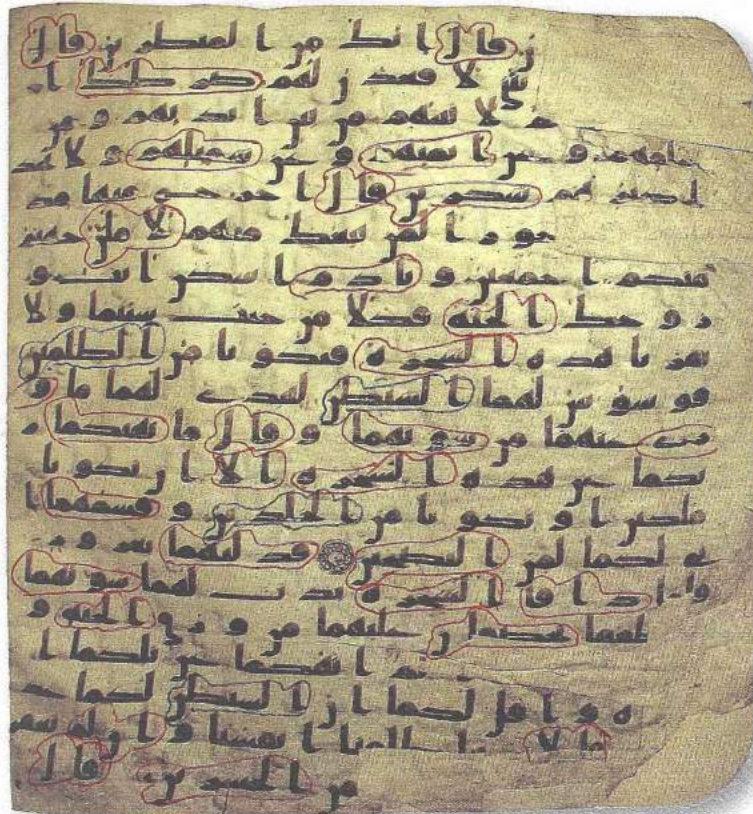 ن قال انك من المنظرين قال
تنى لاقعدن لهم صرطك ا
م لاتينهم من بين ايديهم و من
خلفهم و عن ايمنهم و عن شميلهم و لا تجد
اكثرهم شكرين قال اخرج منها مذ
حورا لمن تبعك منهم لاملن جهنم
منكم اجمعين و يادم اسكن انت و
زوجك الجنه فكلا من حيث شيتما و لا
تقربا هذه الشجره فتكونا من الظلمين
فوسوس لهما الشيطن ليبدى لهما ما و
رى عنهما من سوتهما و قال ما نهيكما ر
بكما عن هذه الشجره الا ان تكونا
ملكين او تكونا من الخلدين و قسمهما ا
نى لكما لمن النصحين فدليهما بغرور
ذاقا الشجره بدت لهما سوتهما
يخصفان عليهما من ورق الجنه و
انهكما عن تلكما ا
ره و اقل لكما ان الشيطن لكما عد
قالا ظلمنا انفسنا و ان لم تغفر
من الخسرين قال